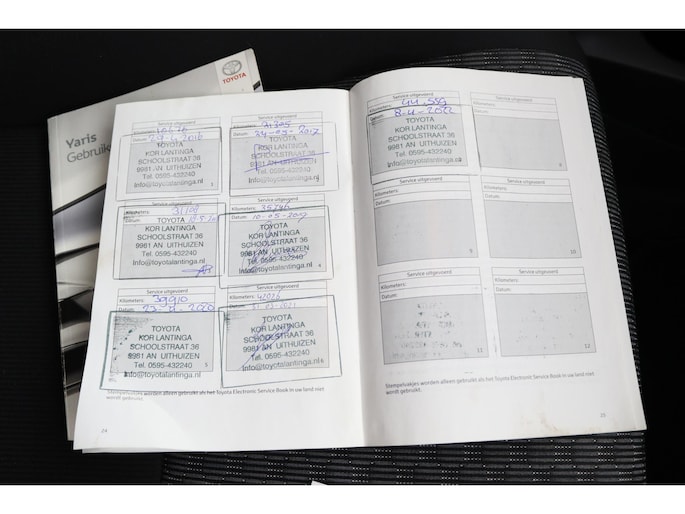 TOYOTA
Yaris
Service uitgevoerd
Kilometers:
Datum:
TOYOTA
KOR LANTINGA
SCHOOLSTRAAT 36
9981 AN UITHUIZEN
Tel. 0595-432240
Info@toyotalantinga.nl
Service uitgevoerd
Datum: 24-05-2017
TOYOTA
KOR LANTINGA
SCHOOLSTRAAT 36
9981 AN UITHUIZEN
Tel. 0595-432240
Info@toyotalantinga.nl
Service uitgevoerd
Kilometers:
Datum:
TOYOTA
KOR LANTINGA
SCHOOLSTRAAT 36
9981 AN UITHUIZEN
Tel. 0595-432240
Info@toyotalantinga.nl
Service uitgevoerd
Kilometers: 35746
Datum:
TOYOTA
KOR LANTINGA
SCHOOLSTRAAT 36
9981 AN UITHUIZEN
Tel. 0595-432240
Info@toyotalantinga.nl
4
Service uitgevoerd
Kilometers: 39910
Datum:
TOYOTA
KOR LANTINGA
SCHOOLSTRAAT 36
9981 AN UITHUIZEN
Tel. 0595-432240
Info@toyotalantinga.nl
5
Service uitgevoerd
Kilometers: 42026
Datum:
TOYOTA
KOR LANTINGA
SCHOOLSTRAAT 36
9981 AN UITHUIZEN
Tel. 0595-432240
Info@toyotalantinga.nl
6
Stempelvakjes worden alleen gebruikt als het Toyota Electronic Service Book in uw land niet
wordt gebruikt.
24
Service uitgevoerd
Kilometers: 44.559
Datum: 8-4-2022
TOYOTA
KOR LANTINGA
SCHOOLSTRAAT 36
9981 AN UITHUIZEN
Tel. 0595-432240
Info@toyotalantinga.nl
Service uitgevoerd
Kilometers:
Datum:
8
Service uitgevoerd
Kilometers:
Datum:
9
Service uitgevoerd
Kilometers:
Datum:
10
Service uitgevoerd
Kilometers:
Datum:
11
Service uitgevoerd
Kilometers:
Datum:
12
Stempelvakjes worden alleen gebruikt als het Toyota Electronic Service Book in uw land niet
wordt gebruikt.
25